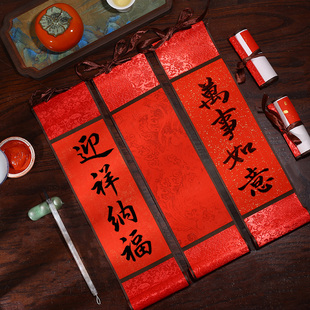 迎祥納福
萬事如意